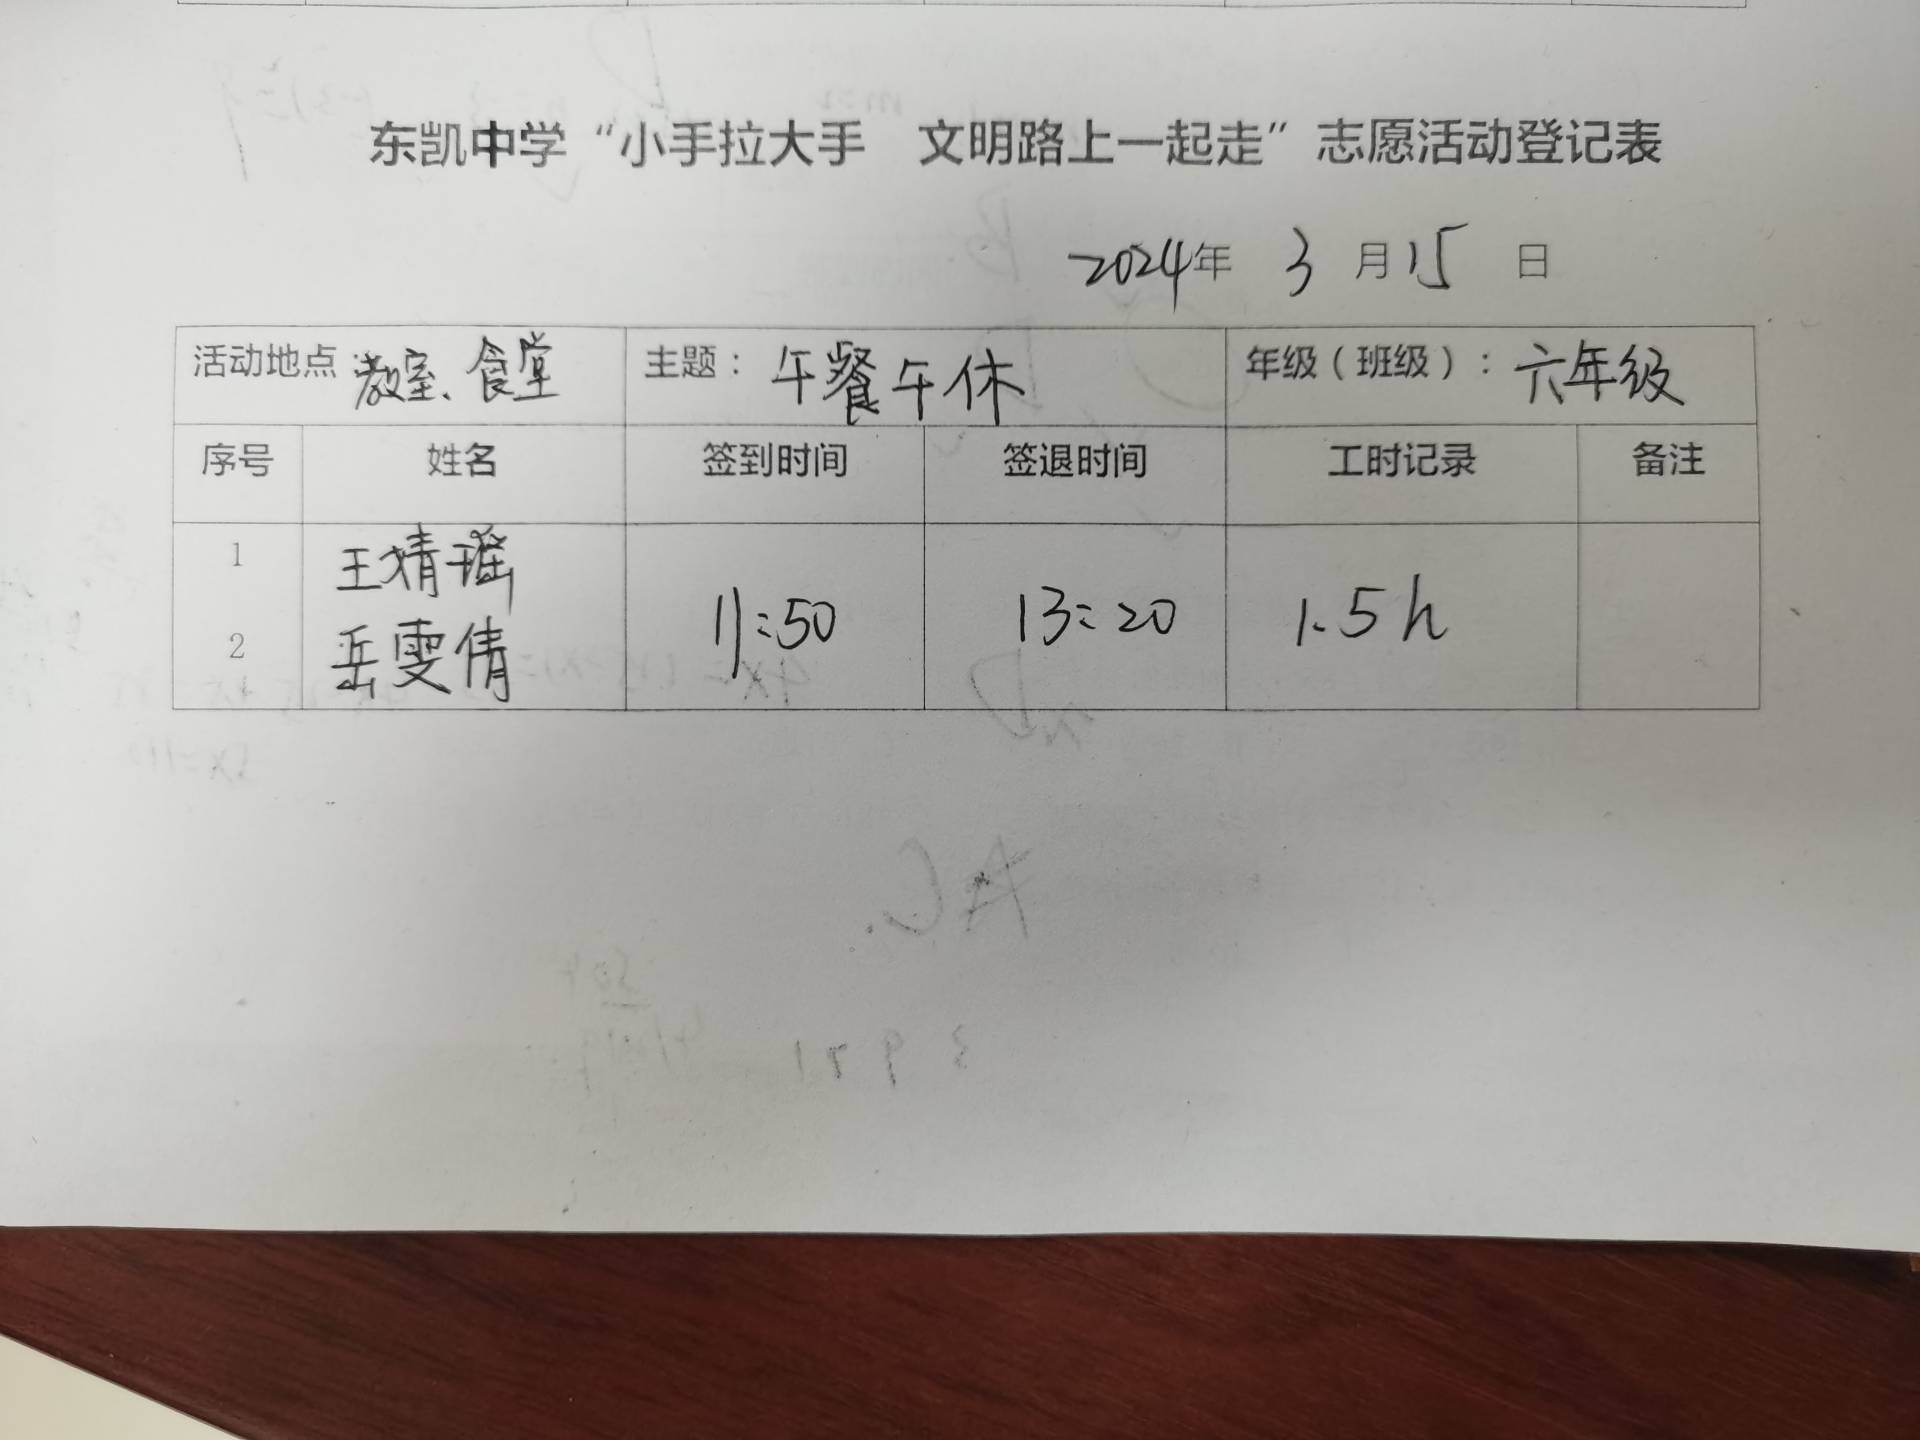 东凯中学“小手拉大手　文明路上一起走”志愿活动登记表
2024年 3 月 15 日
活动地点 教室、食堂 主题： 午餐午休 年级（班级）： 六年级
序号 姓名 签到时间 签退时间 工时记录 备注
1 王婧瑶
11:50 13:20 1.5h
2 岳雯倩